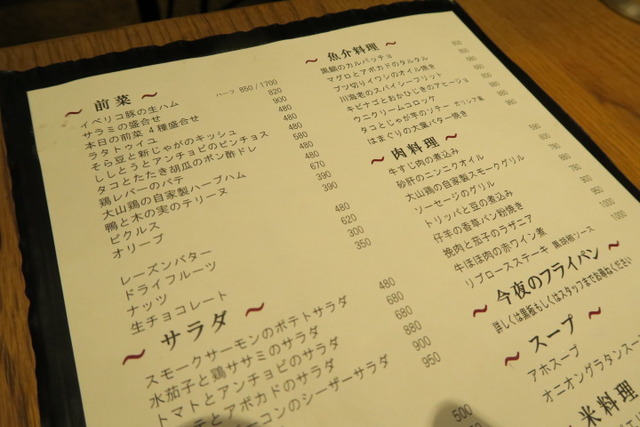 ~ 前菜 ~
イベリコ豚の生ハム ハーフ 850/1700
サラミの盛合せ 820
本日の前菜 4種盛合せ 900
ラタトゥイユ 480
そら豆と新じゃがのキッシュ 480
ししとうとアンチョビのピンチョス 580
タコとたたき胡瓜のポン酢ドレ 480
鶏レバーのパテ 480
大山鶏の自家製ハーブハム 670
鴨と木の実のテリーヌ
ピクルス 390
オリーブ 390
レーズンバター 480
ドライフルーツ 620
ナッツ 300
生チョコレート 350
~ サラダ ~
スモークサーモンのポテトサラダ 480
水茄子と鶏ササミのサラダ 680
トマトとアンチョビのサラダ 680
テとアボカドのサラダ 880
ーコンのシーザーサラダ 900
950
500
~ 魚介料理 ~
真鯛のカルパッチョ
マグロとアボカドのタルタル
ブツ切りイワシのオイル焼き
川海老のスパイシーフリット
キビナゴとおかひじきのアヒージョ
ウニクリームコロッケ
タコとしじゃが芋のソテー ガリシア風
はまぐりの大葉バター焼き
~ 肉料理 ~
牛すじ肉の煮込み
砂肝のニンニクオイル
大山鶏の自家製スモークグリル
ソーセージのグリル
トリッパと豆の煮込み
仔羊の香草パン粉焼き
挽肉と茄子のラザニア
牛ほほ肉の赤ワイン煮
リブロースステーキ 黒胡椒ソース
~ 今夜のフライパン ~
詳しくは黒板もしくはスタッフまでお尋ねください
~ スープ ~
アホスープ
オニオングラタンスー
米料理